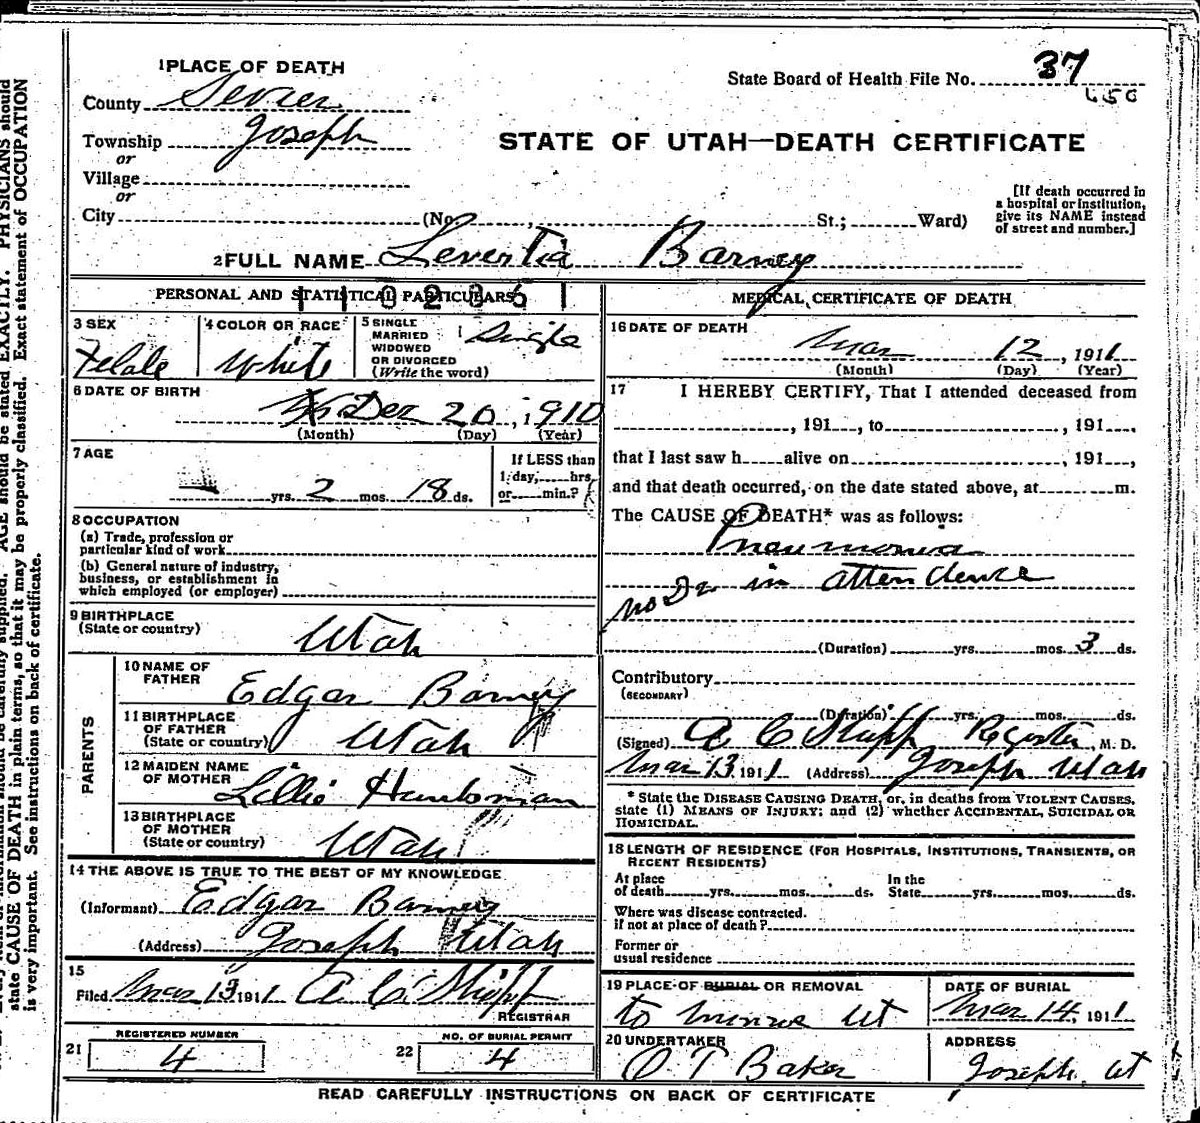 1 PLACE OF DEATH
State Board of Health File No. 37
County Sevier
Township Joseph
or
Village
or
City (No. St.; Ward)
STATE OF UTAH—DEATH CERTIFICATE
[If death occurred in
a hospital or institution,
give its NAME instead
of street and number.]
2 FULL NAME Levertia Barney
PERSONAL AND STATISTICAL PARTICULARS
3 SEX
Felale
4 COLOR OR RACE
White
5 SINGLE
MARRIED
WIDOWED
OR DIVORCED
(Write the word)
Single
6 DATE OF BIRTH
Dec 20, 1910
(Month) (Day) (Year)
7 AGE
yrs. 2 mos. 18 ds.
If LESS than
1 day, hrs.
or min.?
8 OCCUPATION
(a) Trade, profession or
particular kind of work
(b) General nature of industry,
business, or establishment in
which employed (or employer)
9 BIRTHPLACE
(State or country)
Utah
PARENTS
10 NAME OF
FATHER
Edgar Barney
11 BIRTHPLACE
OF FATHER
(State or country)
Utah
12 MAIDEN NAME
OF MOTHER
Lillie
13 BIRTHPLACE
OF MOTHER
(State or country)
Utah
14 THE ABOVE IS TRUE TO THE BEST OF MY KNOWLEDGE
(Informant) Edgar Barney
(Address) Joseph Utah
15
Filed Mar 13 1911 A C
REGISTRAR
REGISTERED NUMBER
21 4
NO. OF BURIAL PERMIT
22 4
MEDICAL CERTIFICATE OF DEATH
16 DATE OF DEATH
Mar 12, 1911
(Month) (Day) (Year)
17 I HEREBY CERTIFY, That I attended deceased from
, 191 , to , 191 ,
that I last saw h alive on , 191 ,
and that death occurred, on the date stated above, at m.
The CAUSE OF DEATH* was as follows:
Pneumonia
no Dr in attendence
(Duration) yrs. mos. 3 ds.
Contributory
(SECONDARY)
(Duration) yrs. mos. ds.
(Signed) A C Register, M. D.
Mar 13, 1911 (Address) Joseph Utah
* State the DISEASE CAUSING DEATH, or, in deaths from VIOLENT CAUSES,
state (1) MEANS OF INJURY; and (2) whether ACCIDENTAL, SUICIDAL OR
HOMICIDAL.
18 LENGTH OF RESIDENCE (FOR HOSPITALS, INSTITUTIONS, TRANSIENTS, OR
RECENT RESIDENTS)
At place
of death yrs. mos. ds.
In the
State yrs. mos. ds.
Where was disease contracted,
if not at place of death?
Former or
usual residence
19 PLACE OF BURIAL OR REMOVAL
to Munroe Ut
DATE OF BURIAL
Mar 14, 1911
20 UNDERTAKER
O T Baker
ADDRESS
Joseph, Ut
READ CAREFULLY INSTRUCTIONS ON BACK OF CERTIFICATE
AGE should be stated EXACTLY. PHYSICIANS should
state CAUSE OF DEATH in plain terms, so that it may be properly classified. Exact statement of OCCUPATION
is very important. See instructions on back of certificate.